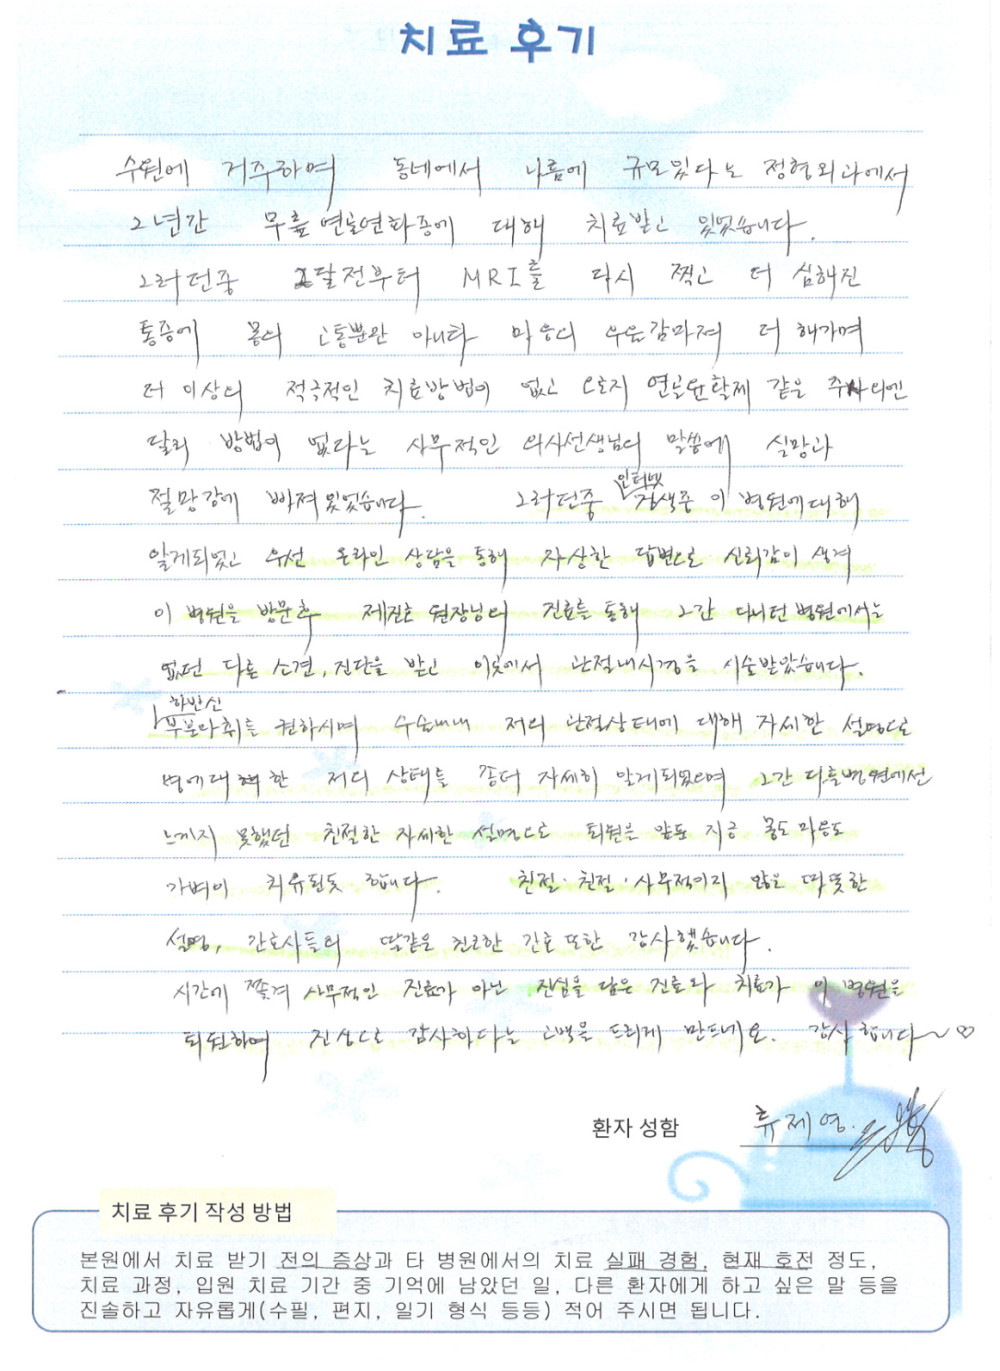 치료 후기
수원에 거주하며 동네에서 나름에 규모있다는 정형외과에서
2년간 무릎 연골연화증에 대해 치료받고 있었습니다.
그러던중 2달전부터 MRI를 다시 찍고 더 심해진
통증에 몸의 고통뿐만 아니라 마음의 우울감마져 더 해가며
더 이상의 적극적인 치료방법이 없고 오로지 연골윤활제 같은 주사외엔
달리 방법이 없다는 사무적인 의사선생님의 말씀에 실망과
절망감에 빠져있었습니다. 그러던중 인터넷 검색중 이 병원에대해
알게되었고 우선 온라인 상담을 통해 자상한 답변으로 신뢰감이 생겨
이 병원을 방문후 제진호 원장님의 진료를 통해 그간 다니던 병원에서는
없던 다른 소견, 진단을 받고 이곳에서 관절내시경을 시술받았습니다.
하반신 부분마취를 권하시며 수술내내 저의 관절상태에 대해 자세한 설명으로
병에대한 저의 상태를 좀더 자세히 알게되었으며 그간 다른병원에선
느끼지 못했던 친절한 자세한 설명으로 퇴원을 앞둔 지금 몸도 마음도
가벼이 치유된듯 합니다. 친절·친절·사무적이지 않은 따뜻한
설명, 간호사들의 딸같은 친근한 간호 또한 감사했습니다.
시간에 쫓겨 사무적인 진료가 아닌 진심을 담은 진료와 치료가 이 병원을
퇴원하며 진심으로 감사하다는 고백을 드리게 만드네요. 감사 합니다~♡
환자 성함 류제영.
치료 후기 작성 방법
본원에서 치료 받기 전의 증상과 타 병원에서의 치료 실패 경험, 현재 호전 정도,
치료 과정, 입원 치료 기간 중 기억에 남았던 일, 다른 환자에게 하고 싶은 말 등을
진솔하고 자유롭게(수필, 편지, 일기 형식 등등) 적어 주시면 됩니다.